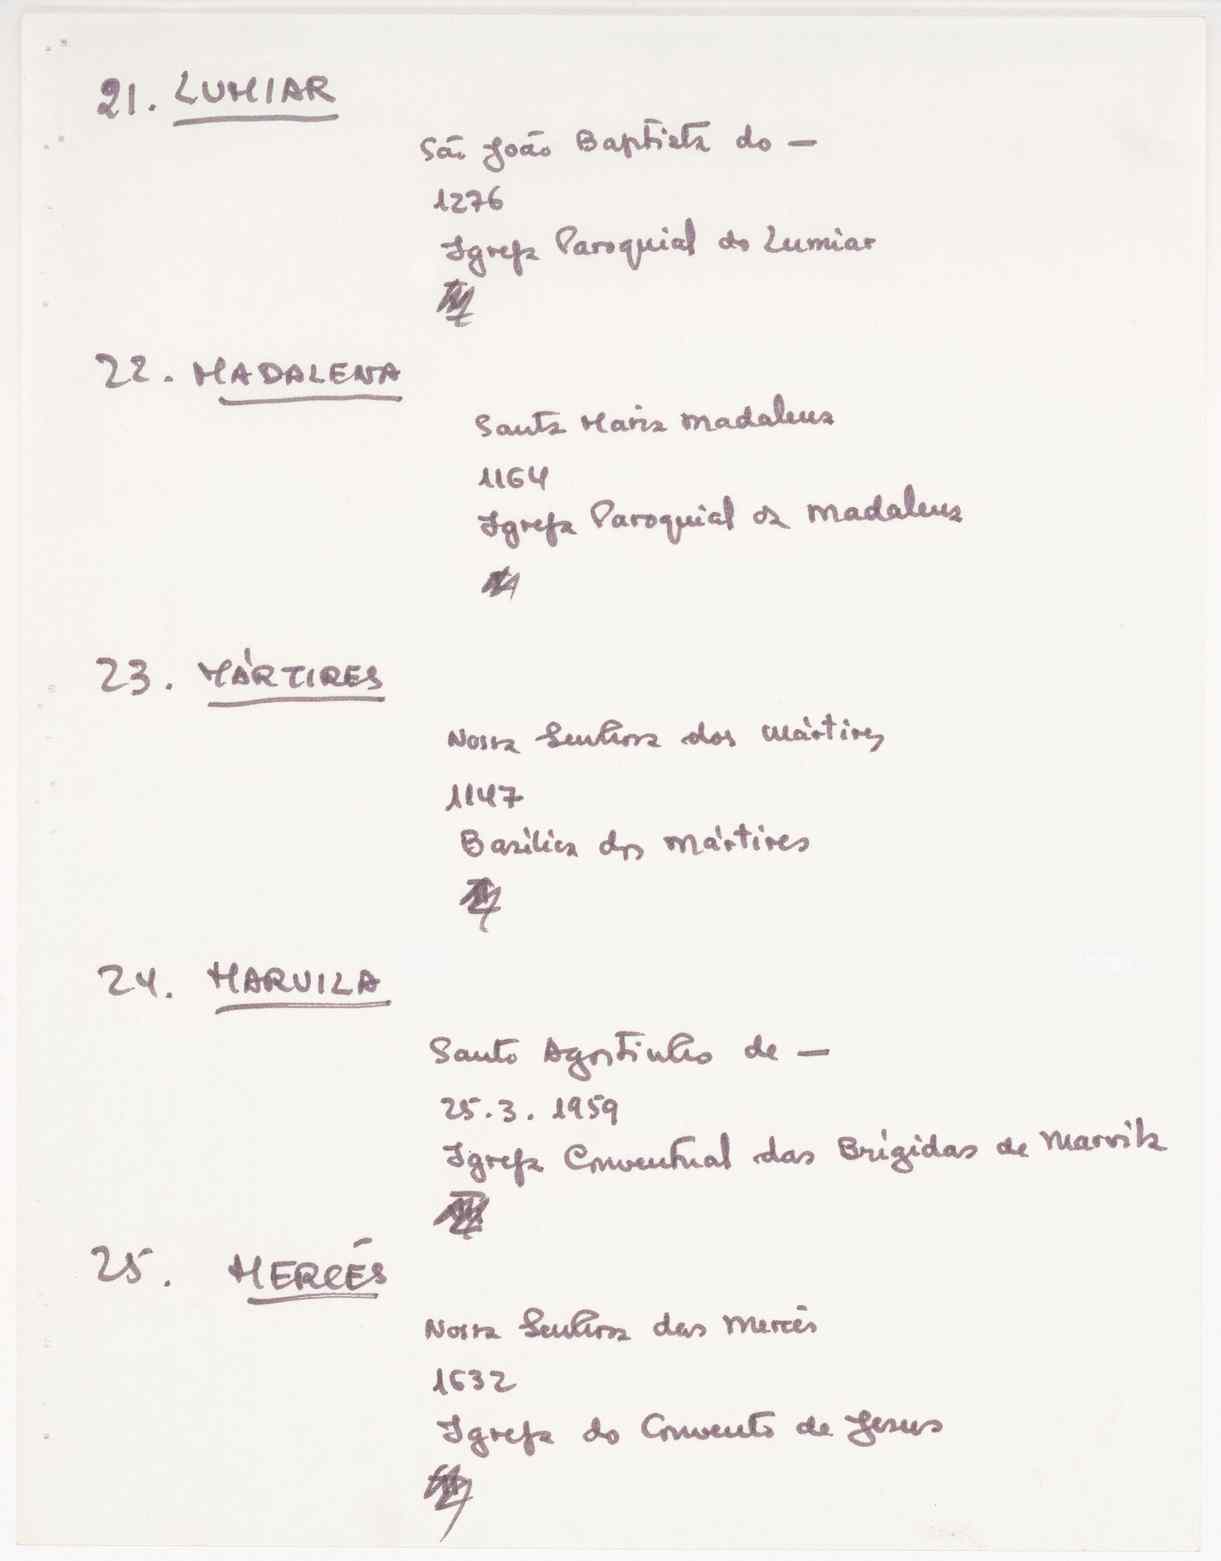 21. LUMIAR
São João Baptista do —
1276
Igreja Paroquial do Lumiar
22. MADALENA
Santa Maria Madalena
1164
Igreja Paroquial da Madalena
23. MÁRTIRES
Nossa Senhora dos Mártires
1147
Basílica dos Mártires
24. MARVILA
Santo Agostinho de —
25.3.1959
Igreja Conventual das Brígidas de Marvila
25. MERCÊS
Nossa Senhora das Mercês
1632
Igreja do Convento de Jesus